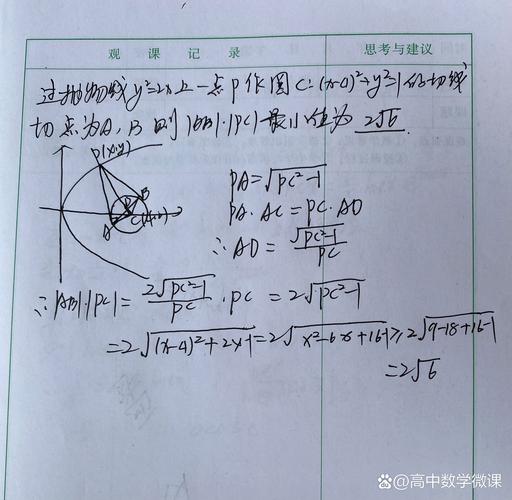 观 课 记 录 思考与建议
过抛物线y²=2x上一点P作圆C:(x-4)²+y²=1的切线
切点为A,B 则|AB|·|PC|最小值为 2√6.
P(x,y)
B
D
A C(4,0)
PA=√PC²-1
PA·AC=PC·AD
∴AD=√PC²-1/PC
∴|AB|·|PC|=2√PC²-1/PC·PC=2√PC²-1
=2√(x-4)²+2x-1=2√x²-6x+16-1≥2√9-18+16-1
=2√6
@高中数学微课